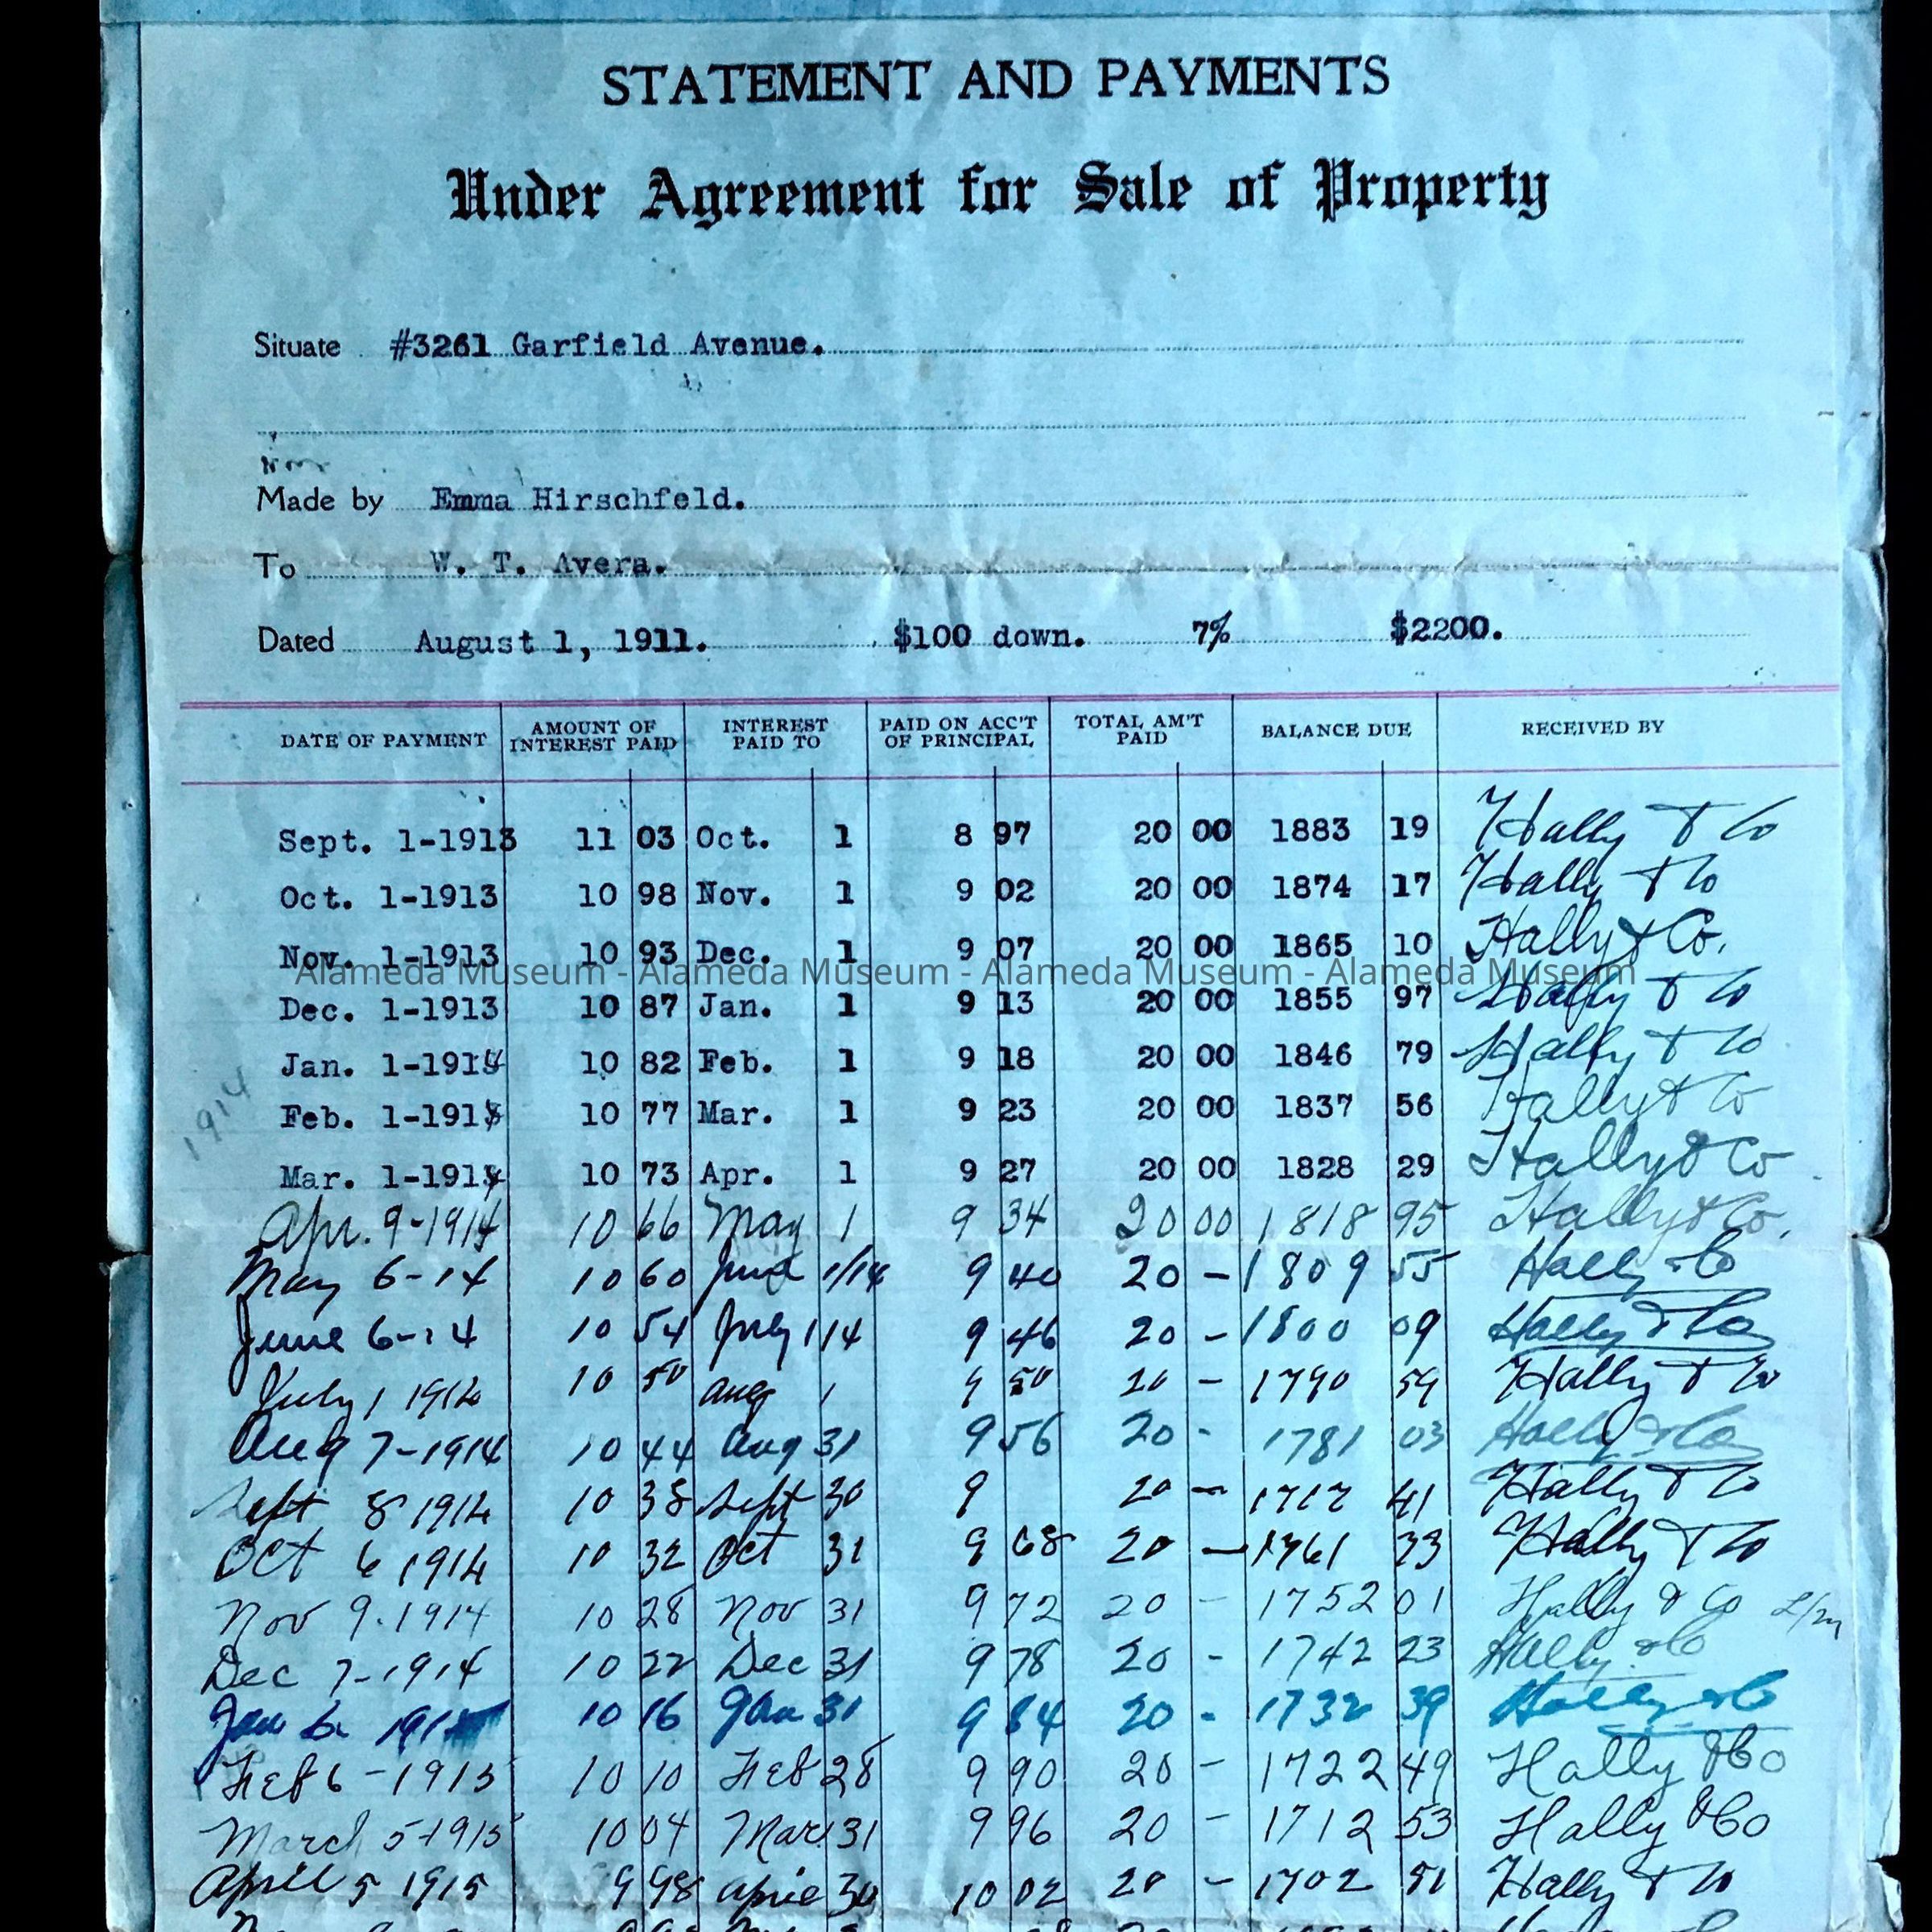 STATEMENT AND PAYMENTS
Under Agreement for Sale of Property
Situate #3261 Garfield Avenue.
Made by Emma Hirschfeld.
To W. T. Avera.
Dated August 1, 1911. $100 down. 7% $2200.
DATE OF PAYMENT AMOUNT OF INTEREST PAID INTEREST PAID TO PAID ON ACC'T OF PRINCIPAL TOTAL AM'T PAID BALANCE DUE RECEIVED BY
Sept. 1-1913 11 03 Oct. 1 8 97 20 00 1883 19 Hally & Co
Oct. 1-1913 10 98 Nov. 1 9 02 20 00 1874 17 Hally & Co
Nov. 1-1913 10 93 Dec. 1 9 07 20 00 1865 10 Hally & Co.
Alameda Museum - Alameda Museum - Alameda Museum - Alameda Museum
Dec. 1-1913 10 87 Jan. 1 9 13 20 00 1855 97 Hally & Co
Jan. 1-1914 10 82 Feb. 1 9 18 20 00 1846 79 Hally & Co
1914
Feb. 1-191 10 77 Mar. 1 9 23 20 00 1837 56 Hally & Co
Mar. 1-1914 10 73 Apr. 1 9 27 20 00 1828 29 Hally & Co
Apr. 9-1914 10 66 May 1 9 34 20 00 1818 95 Hally & Co.
May 6-14 10 60 June 1/14 9 40 20 - 1809 55 Hally & Co
June 6-14 10 54 July 1 14 9 46 20 - 1800 09 Hally & Co
July 1 1914 10 50 Aug 1 9 50 20 - 1790 59 Hally & Co
Aug 7-1914 10 44 Aug 31 9 56 20 - 1781 03 Hally & Co
Sept 8 1914 10 38 Sept 30 9 20 - 41 Hally & Co
Oct 6 1914 10 32 Oct 31 9 68 20 - 1761 73 Hally & Co
Nov 9-1914 10 28 Nov 31 9 72 20 - 1752 01 Hally & Co
Dec 7-1914 10 22 Dec 31 9 78 20 - 1742 23 Hally & Co
Jan 6 191 10 16 Jan 31 9 84 20 - 1732 39 Hally & Co
Feb 6-1915 10 10 Feb 28 9 90 20 - 1722 49 Hally & Co
March 5-1915 10 04 Mar. 31 9 96 20 - 1712 53 Hally & Co
April 5 1915 9 98 April 30 10 02 20 - 1702 51 Hally & Co